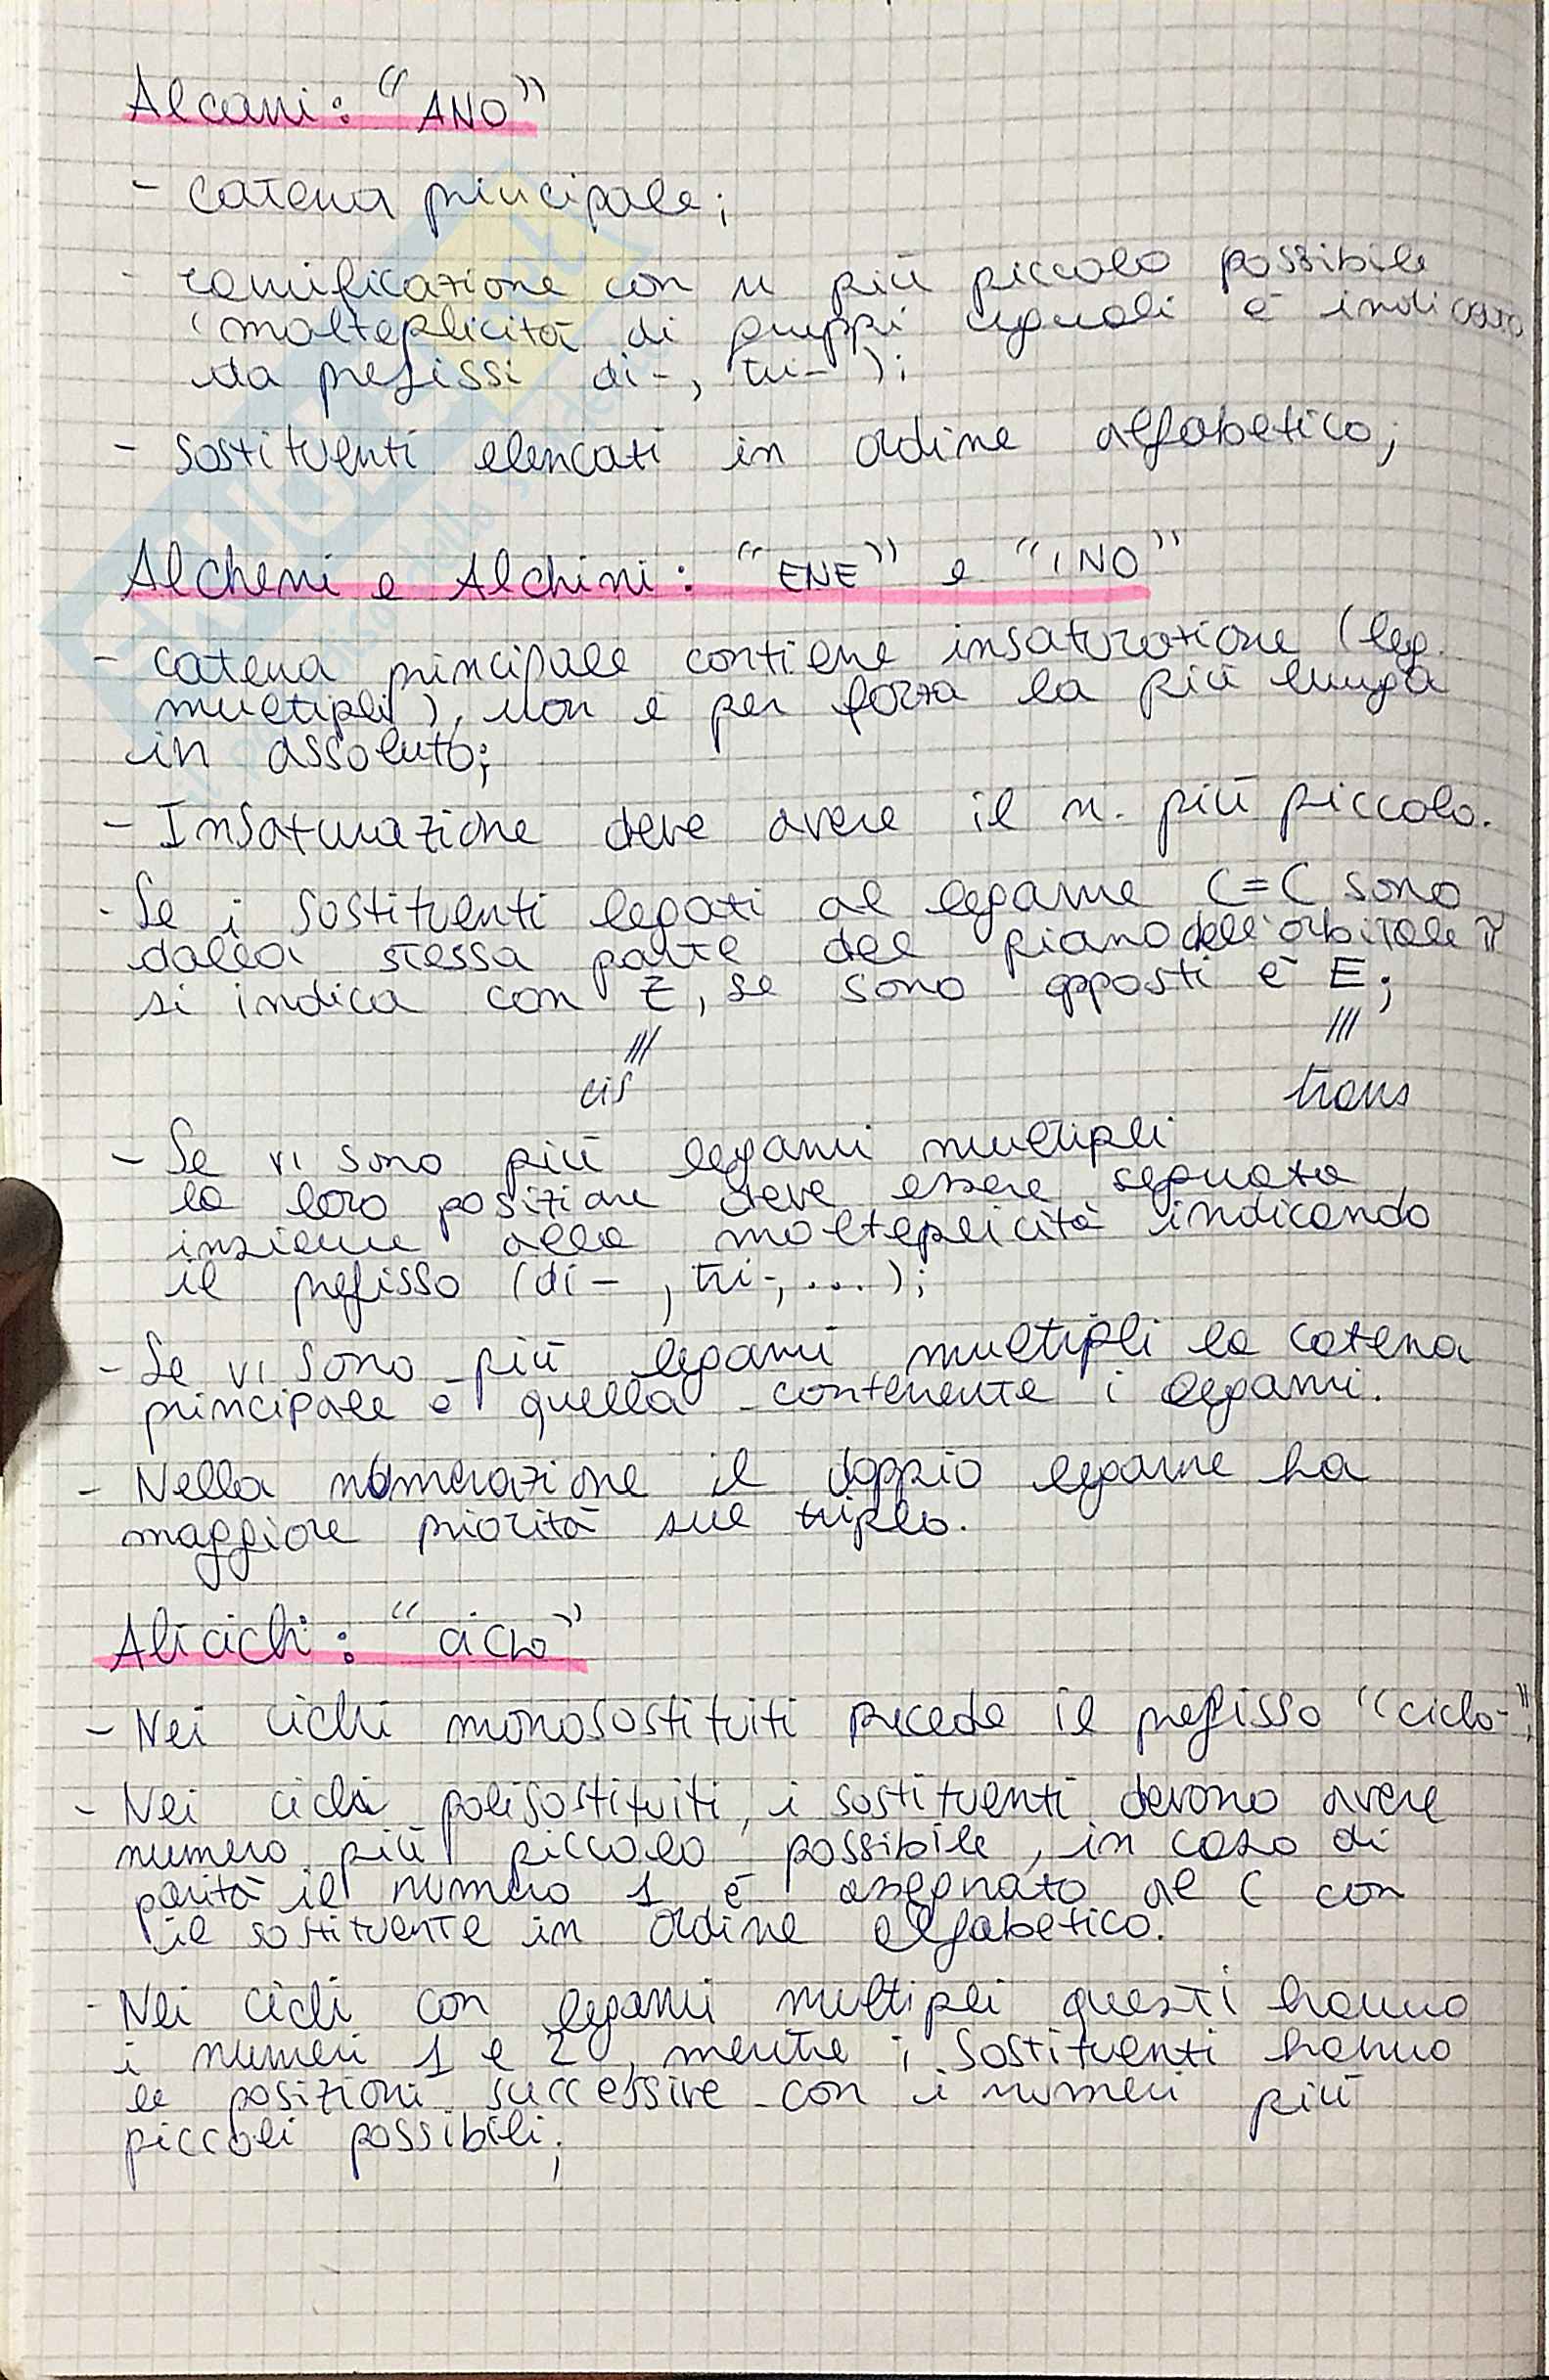 Alcani: "ANO"
- catena principale;
- ramificazione con n più piccolo possibile
(molteplicità di gruppi uguali è indicata
da prefissi di-, tri-);
- sostituenti elencati in ordine alfabetico;
Alcheni e Alchini: "ENE" e "INO"
- catena principale contiene insaturazione (leg.
multipli), non è per forza la più lunga
in assoluto;
- Insaturazione deve avere il n. più piccolo.
- Se i sostituenti legati al legame C=C sono
dalla stessa parte del piano dell'orbitale π
si indica con Z, se sono opposti è E;
/// ///
cis trans
- Se vi sono più legami multipli
la loro posizione deve essere segnata
insieme alla molteplicità indicando
il prefisso (di-, tri-, ...);
- Se vi sono più legami multipli la catena
principale è quella contenente i legami.
- Nella numerazione il doppio legame ha
maggiore priorità sul triplo.
Alicicli: "ciclo"
- Nei cicli monosostituiti precede il prefisso "ciclo-";
- Nei cicli polisostituiti, i sostituenti devono avere
numero più piccolo possibile, in caso di
parità il numero 1 è assegnato al C con
il sostituente in ordine alfabetico.
- Nei cicli con legami multipli questi hanno
i numeri 1 e 2, mentre i sostituenti hanno
le posizioni successive con i numeri più
piccoli possibili;